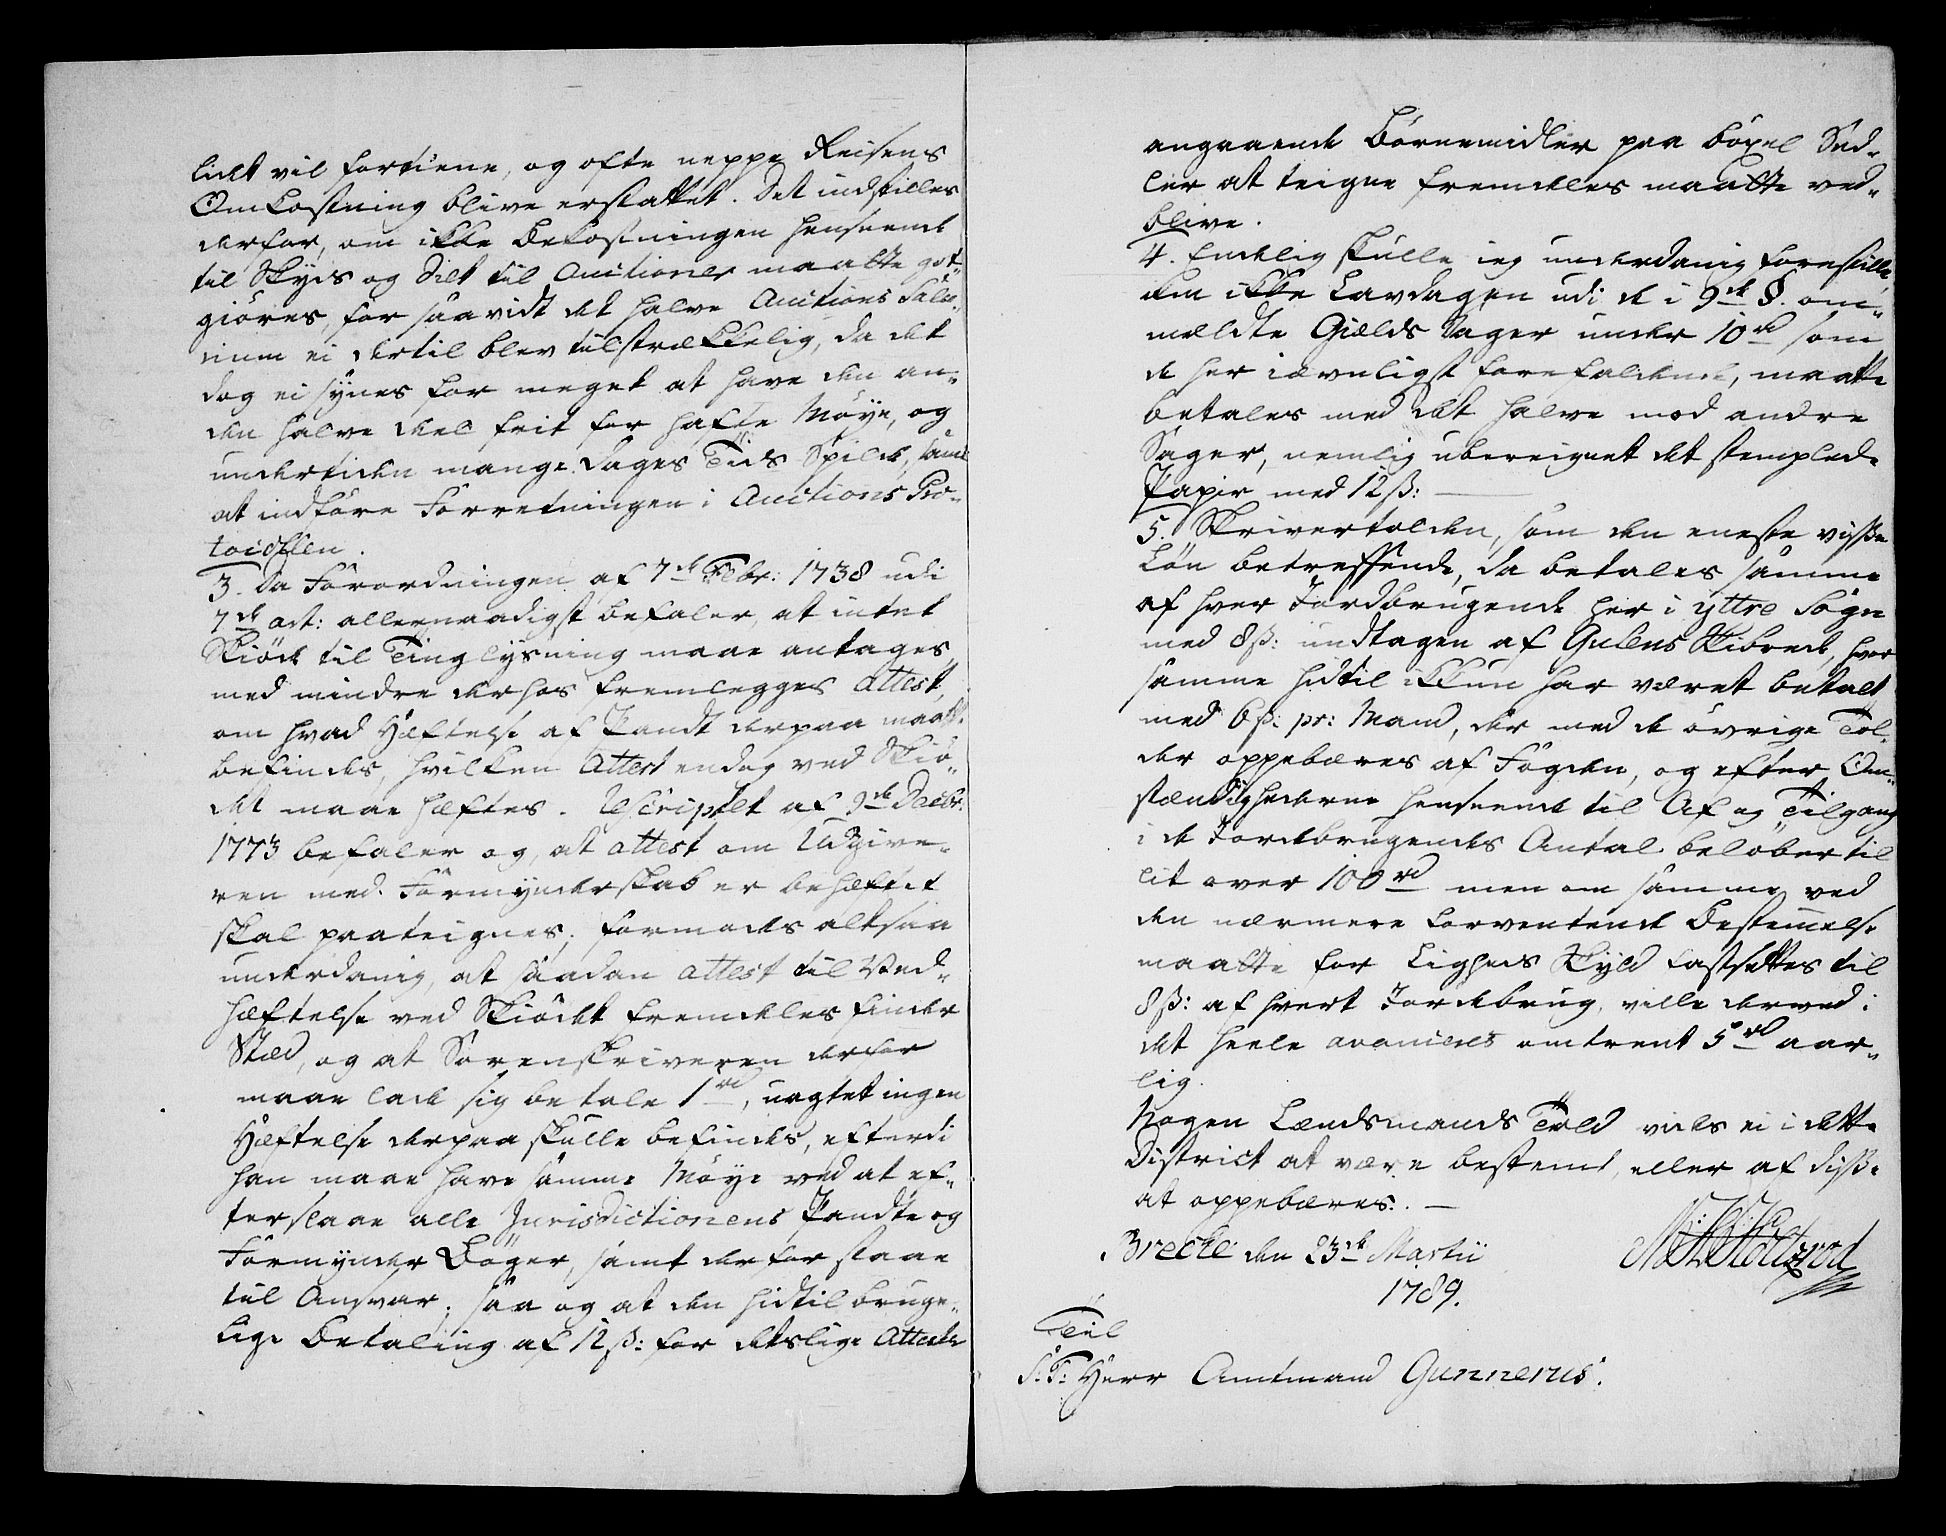 lidt vil fortiene, og ofte neppe Reisens
Omkostning blive erstattet. Det indstilles
derfor, om ikke Bekostningen henseende
til Skyds og Diæt til Auctioner maatte got-
giøres, for saavidt det halve Auctions Sala-
rium ei dertil blev tilstrækkelig, da det
dog ei synes for meget at have den an-
den halve deel frit for hafte Møye, og
undertiden mange dages Tids Spilde, samt
at indføre Forretningen i Auctions Pro-
tocollen.
3. Da Forordningen af 7de Febr: 1738 udi
7de art: allernaadigst befaler, at intet
Skiøde til Tinglysning maae antages,
med mindre derhos fremlegges Attest,
om hvad Hæftelse af Pandt derpaa maatte
befindes, hvilken Attest endog ved Skiø-
det maae hæftes. Rescriptet af 9de Decbr:
1773 befaler og, at attest om Udgive-
ren med Formynderskab er behæftet
skal paateignes; formodes altsaa
underdanig, at saadan attest til Ved-
hæftelse ved Skiødet fremdeles finder
Stæd, og at Sorenskriveren derfor
maae lade sig betale 1rd, uagtet ingen
Hæftelse derpaa skulle befindes, efterdi
han maae have samme Møye ved at ef-
terslaae alle Jurisdictionens Pandte og
Formynder Bøger, samt derfor staae
til Ansvar; saa og at den hidtil bruge-
lige Betaling af 12 ß: for deslige Attester
angaaende Børnemidler paa böxel Sed-
ler at teigne fremdeles maatte ved-
blive.
4. Endelig skulle ieg underdanig forestille,
om ikke Lavdagen udi de i 9de §. om-
meldte Gields Sager under 10rd som
de her iævnligst forefaldende, maatte
betales med det halve mod andre
Sager, nemlig ubereignet det stemplede
Papir med 12 ß:
5. Skrivertolden, som den eneste visse
Løn betreffende, da betales samme
af hver Jordbrugende her i yttre Sogn
med 8 ß: undtagen af Gulens Skibrede, hvor
samme hidtil ikkun har været betalt
med 6 ß: pr: Mand, der med de øvrige Tol-
der oppebæres af Fogden, og efter Om-
stændighederne henseende til Af og Tilgang
i de Jordebrugendes Antal beløber til
lit over 100rd men om samme ved
den nærmere forventende Bestemmelse
maatte for Ligheds Skyld fastsettes til
8 ß: af hvert Jordebrug, ville derved i
det heele avanceres omtrent 5rd aar-
lig.
Nogen Lændsmands Told vides ei i dette
District at være bestemt, eller af disse
at oppebæres. —
Brecke den 23de Martii
1789.
Til
S: T: Herr Amtmand Gunnerus.